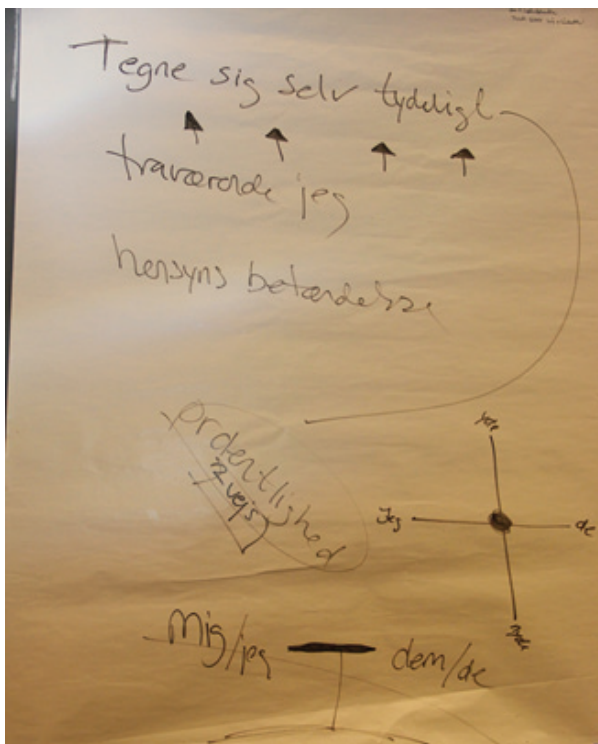 Tegne sig selv tydeligt
fraværende jeg
hensyns betændelse
ordentlighed
2 vejs
Jeg
de
Mig/jeg
dem/de